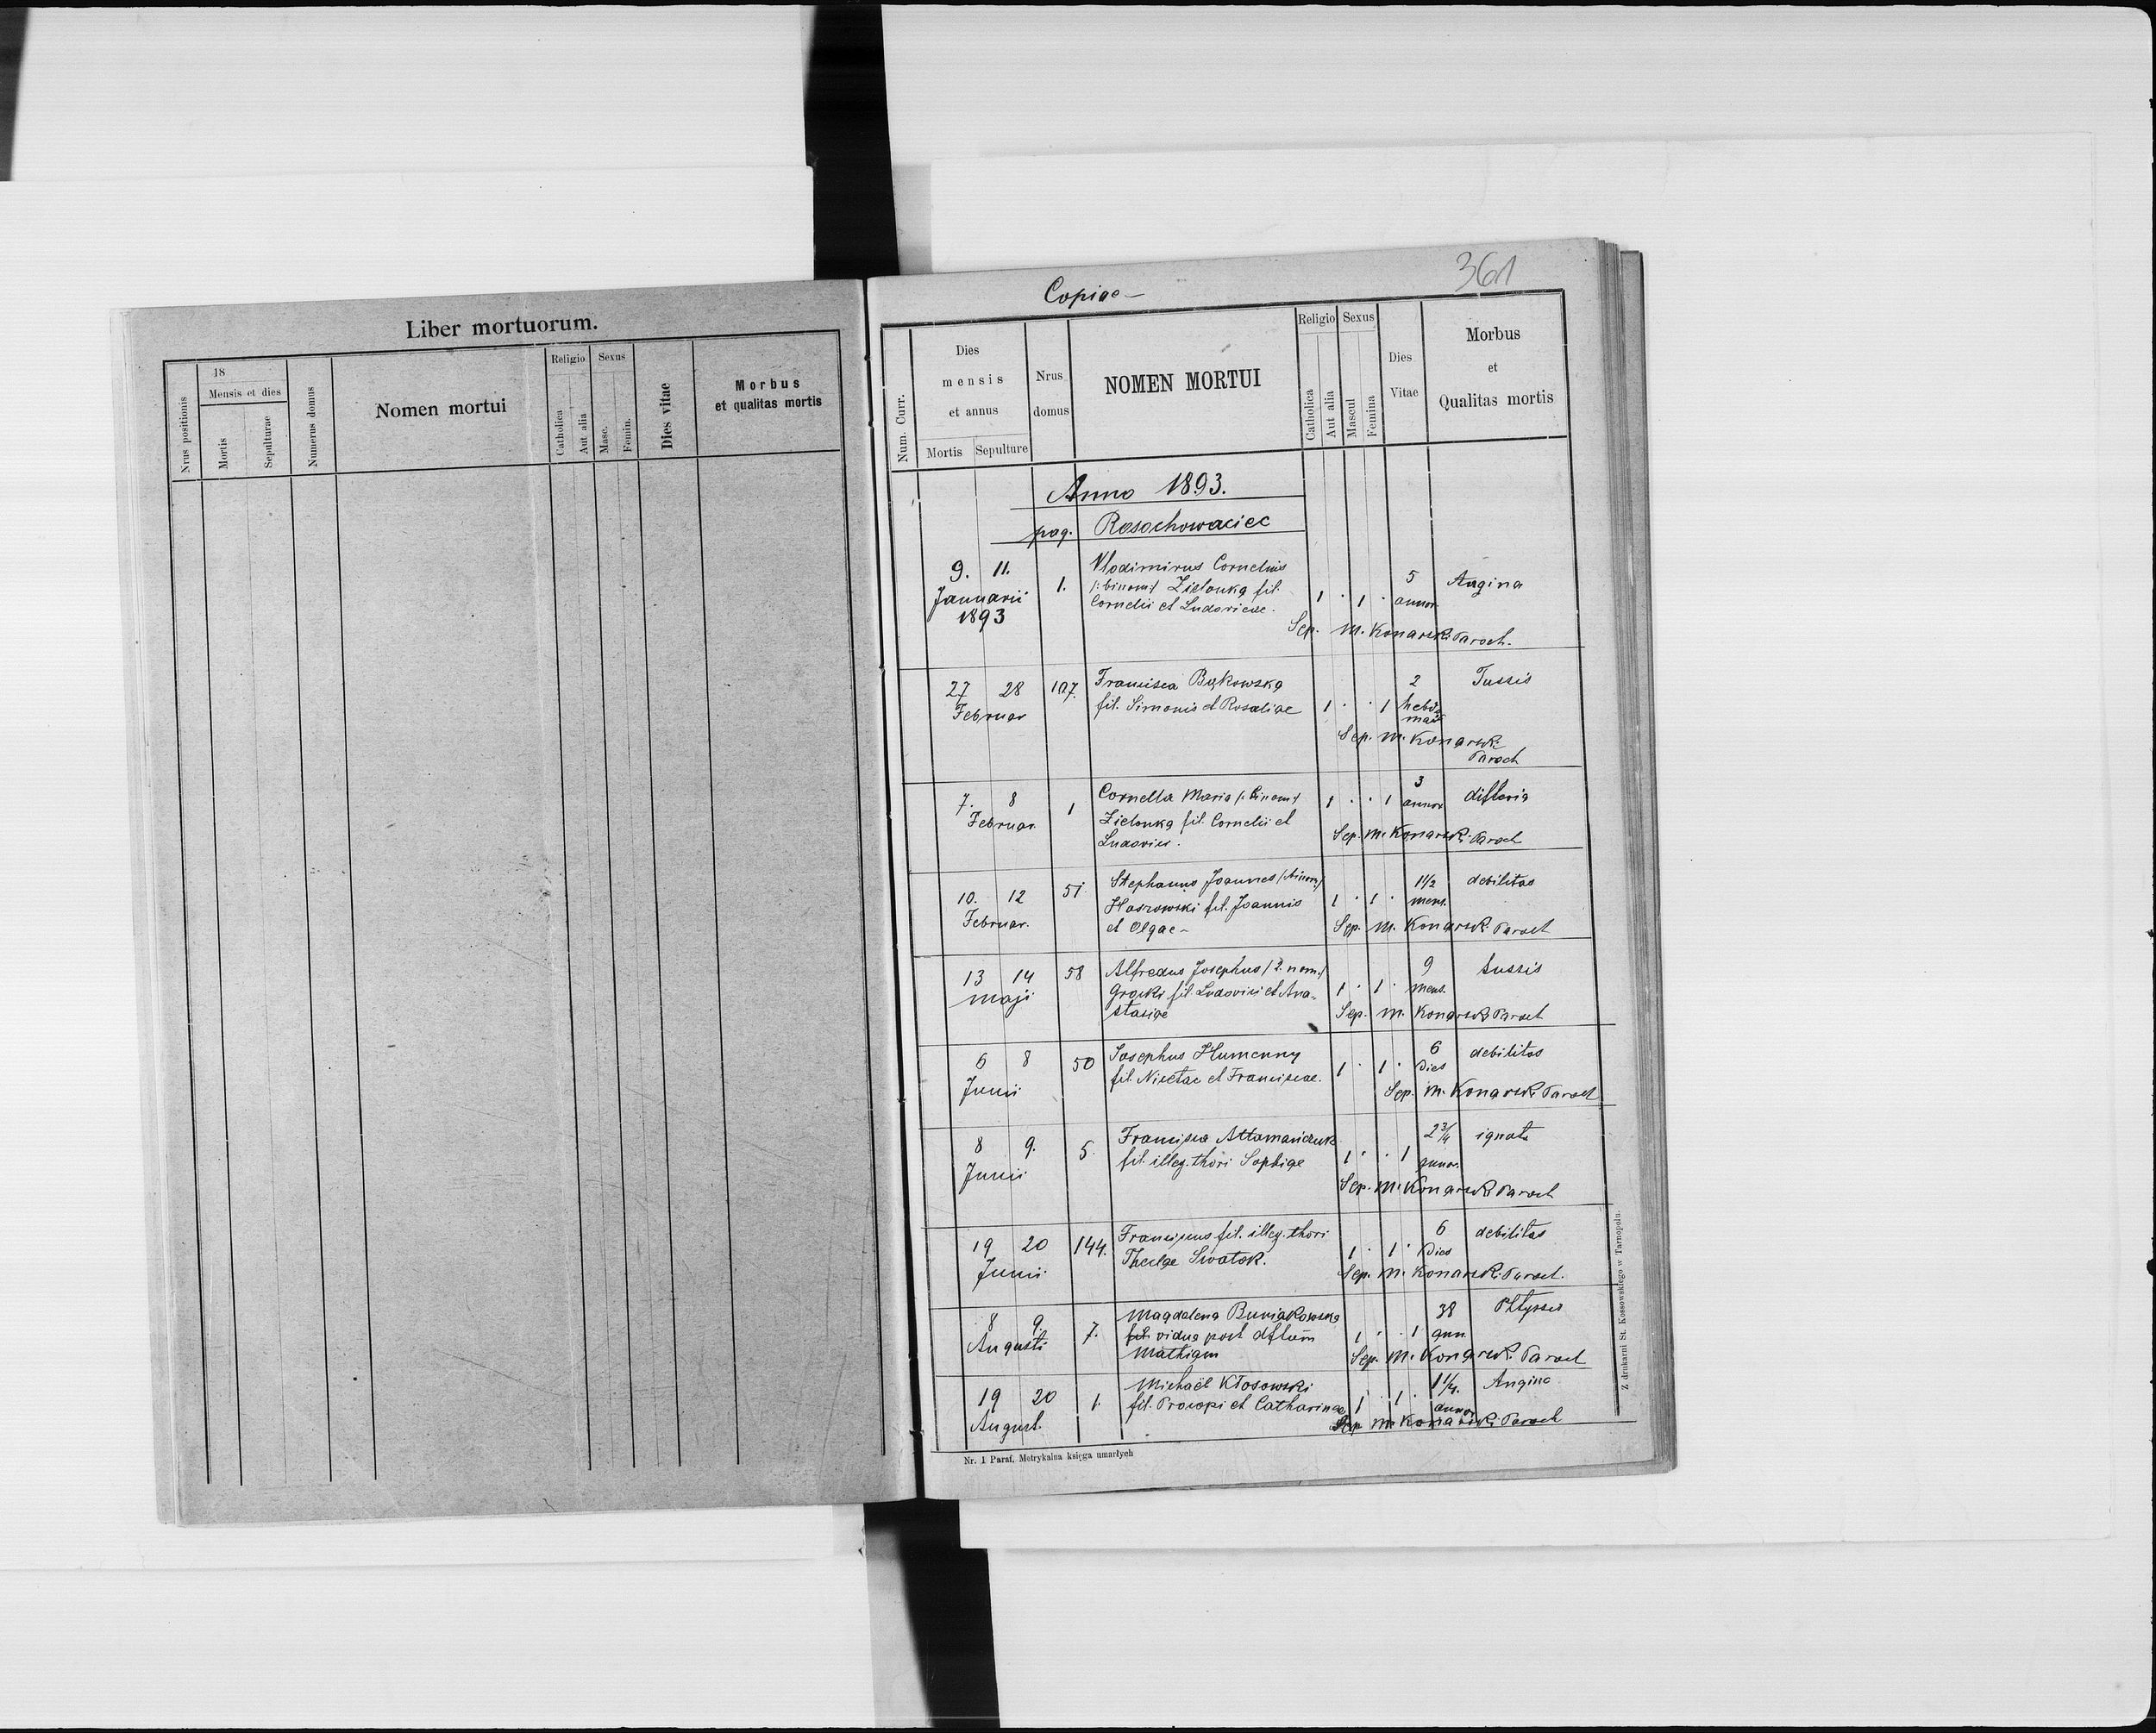 Liber mortuorum.
Nrus positionis
18
Mensis et dies
Mortis
Sepulturae
Numerus domus
Nomen mortui
Religio
Catholica
Aut alia
Sexus
Masc.
Femin.
Dies vitae
Morbus
et qualitas mortis
361
Copiae –
Num. Curr.
Dies
mensis
et annus
Mortis Sepulture
Nrus
domus
NOMEN MORTUI
Religio
Catholica
Aut alia
Sexus
Mascul
Femina
Dies
Vitae
Morbus
et
Qualitas mortis
Anno 1893.
pag. Rosochowaciec
9. 11.
Januarii
1893
1.
Vlodimirus Cornelius
/:binom:/ Zielonka fil.
Cornelii et Ludovicae.
1 . 1 .
5
annor.
Angina
Sep. M. Konarski Paroch.
27 28
Februar
107.
Francisca Bąkowska
fil. Simonis et Rosaliae
1 . . 1
2
hebdo
mad
Tussis
Sep. M. Konarski
Paroch
7. 8
Februar.
1
Cornelia Maria /:binom:/
Zielonka fil. Cornelii et
Ludovicae.
1 . . 1
3
annor
difteria
Sep. M. Konarski Paroch
10. 12
Februar.
51
Stephanus Joannes /binom/
fil. Joannis
et Olgae –
1 . 1 .
1 1/2
mens.
debilitas
Sep. M. Konarski Paroch
13 14
maji
58
Alfredus Josephus /2. nom./
Grocki fil. Ludovici et Ana-
stasiae
1 . 1 .
9
mens.
tussis
Sep. M. Konarski Paroch
6 8
Junii
50
Josephus Humenny
fil. Nicetae et Franciscae.
1 . 1 .
6
dies
debilitas
Sep. M. Konarski Paroch
8 9.
Junii
5.
Francisca Attamańczuk
fil. illeg. thori Sophiae
1 . . 1
2 3/4
annor.
ignota
Sep. M. Konarski Paroch
19 20
Junii
144.
Franciscus fil. illeg. thori
Theclae Swatok.
1 . 1 .
6
dies
debilitas
Sep. M. Konarski Paroch.
8 9.
Augusti
7.
Magdalena Buniakowska
fil. vidua post dftum
Mathiam
1 . . 1
38
ann.
Phtyssis
Sep. M. Konarski Paroch
19 20
August.
1.
Michaël Kłosowski
fil. Procopi et Catharinae
1 . 1 .
1 1/4.
annor
Angina
Sep. M. Konarski Paroch
Nr. 1 Paraf. Metrykalna księga umarłych
Z drukarni St. Kossowskiego w Tarnopolu.